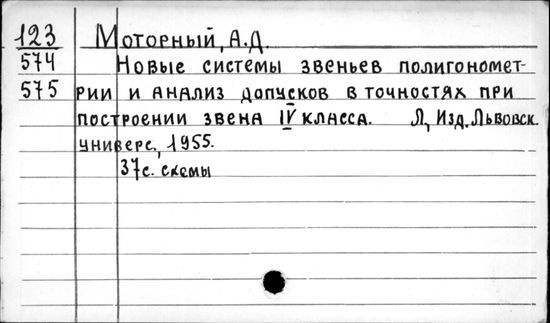 123 Моторный, А.Д.
574 Новые системы звеньев полигономет-
575 рии и анализ допусков в точностях при
построении звена IV класса. Л, Изд. Львовск.
универс., 1955.
37с. схемы